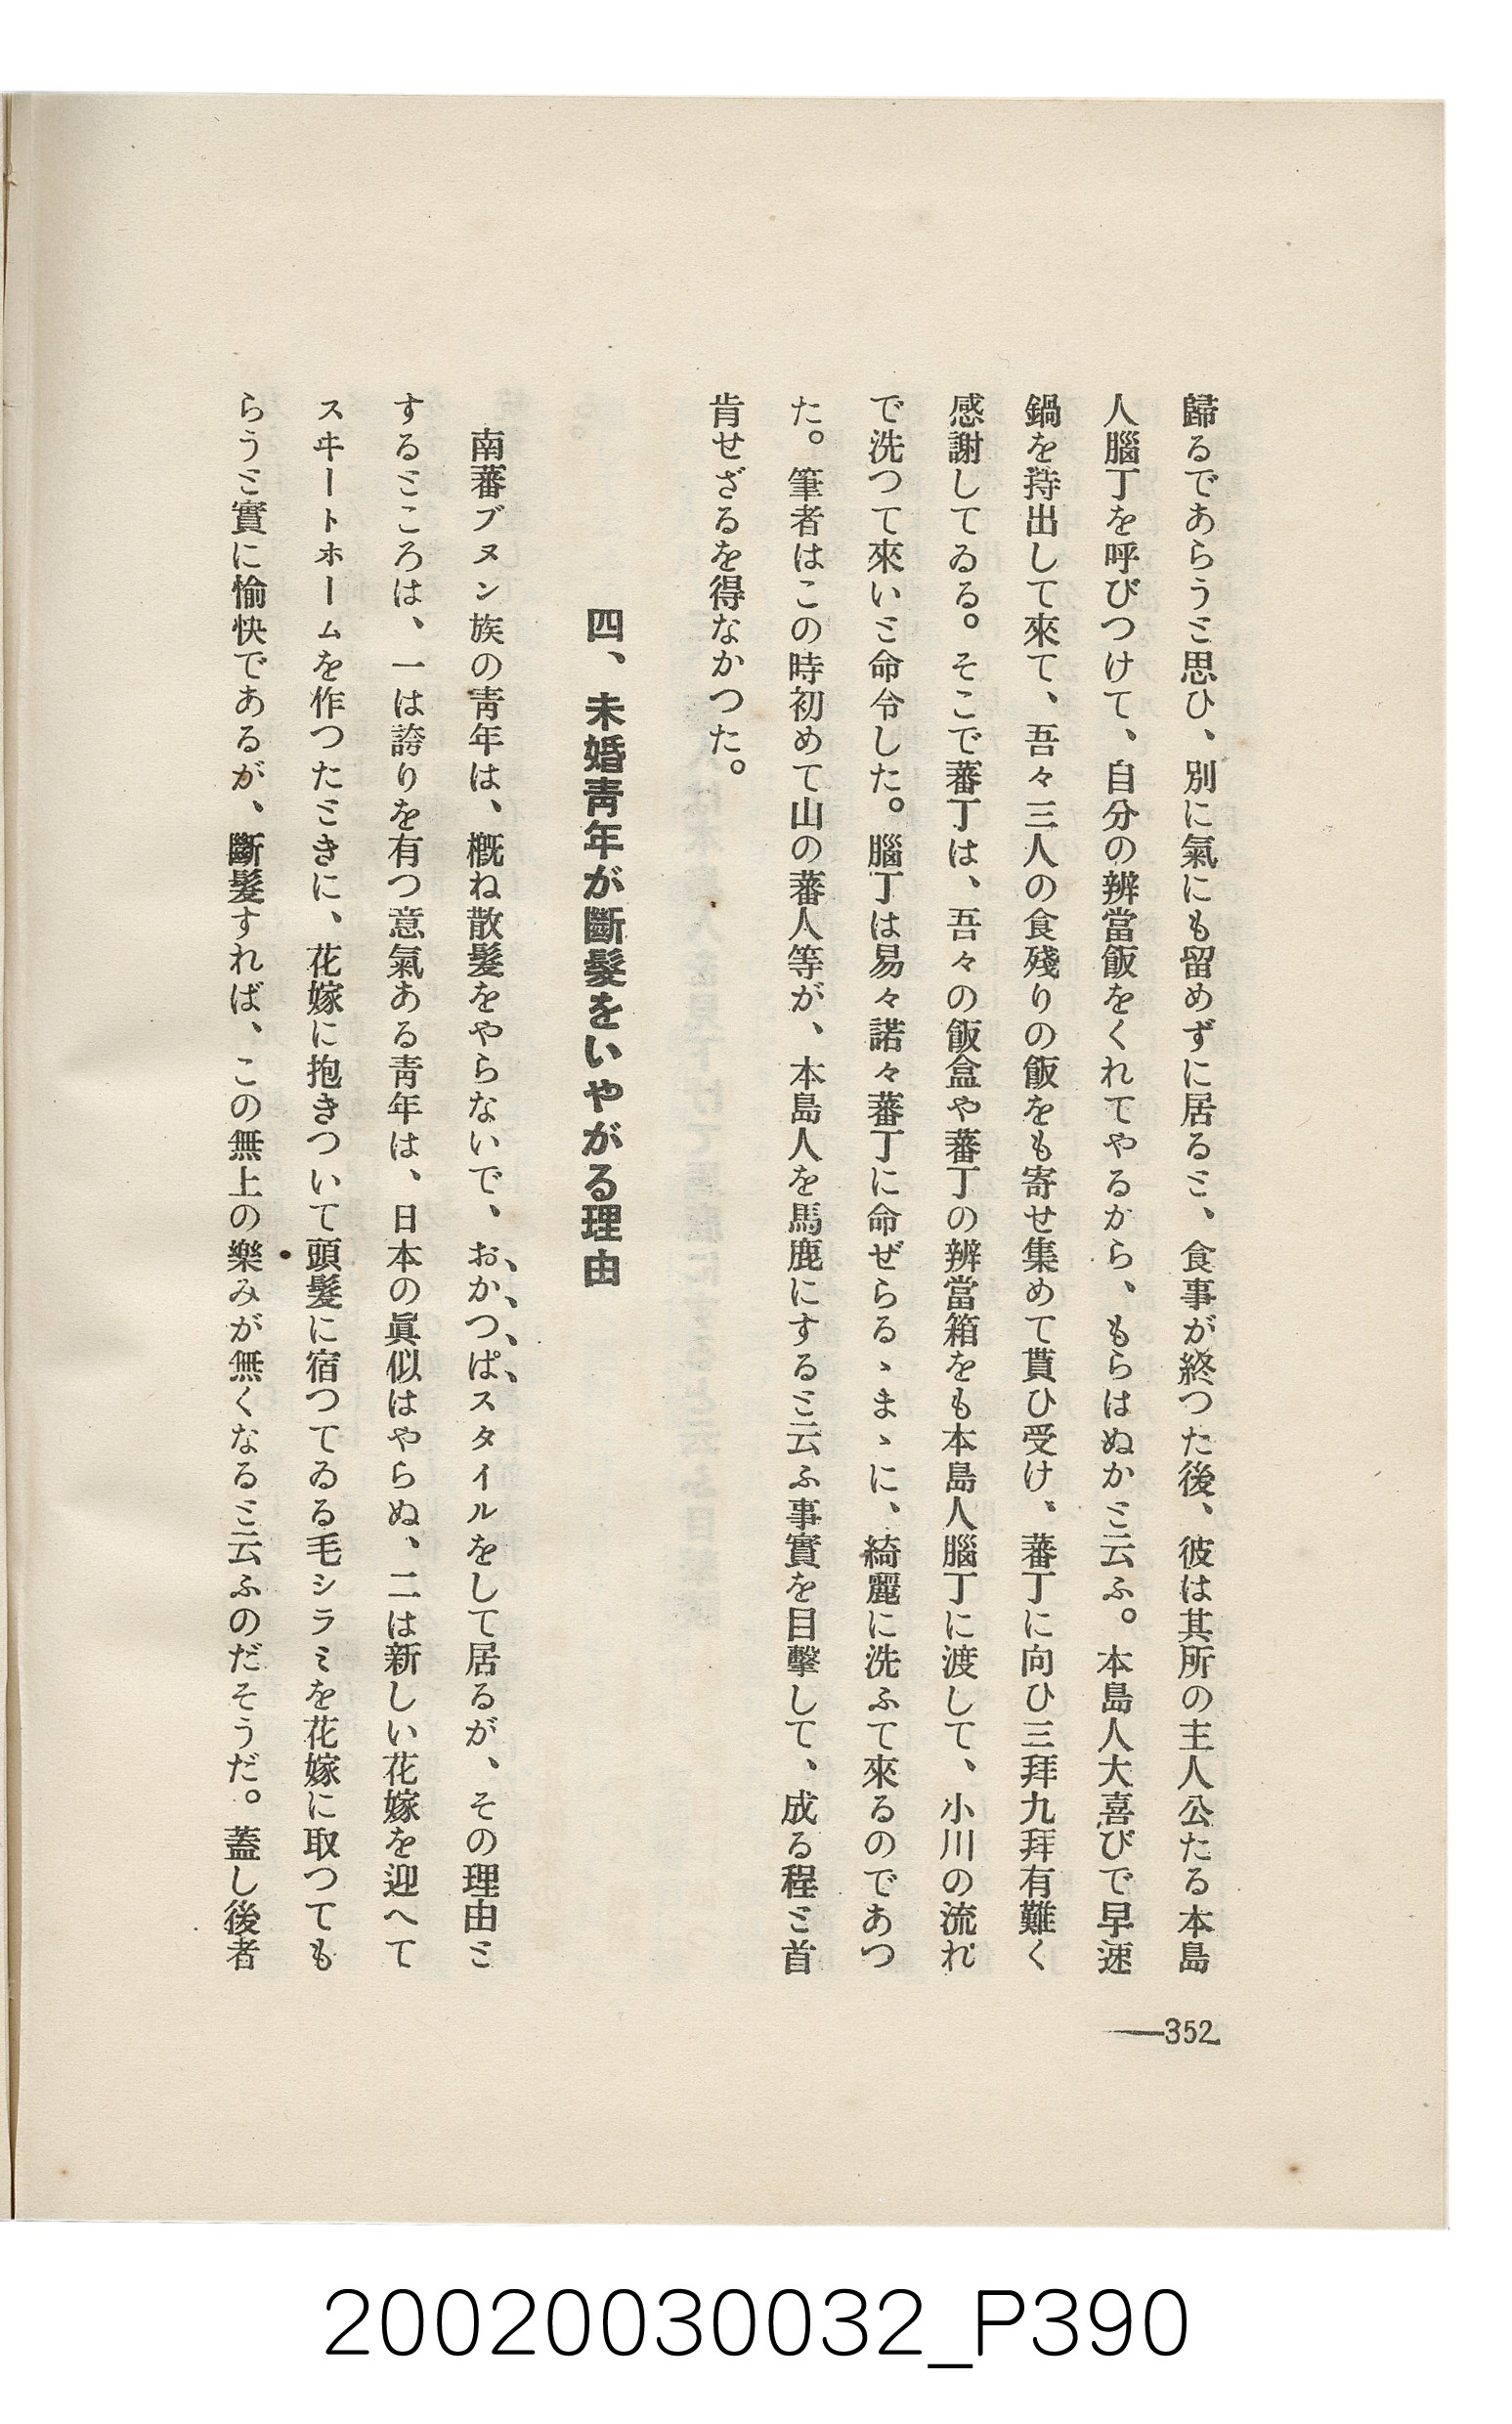 歸るであらうと思ひ、別に氣にも留めずに居ると、食事が終つた後、彼は其所の主人公たる本島
人腦丁を呼びつけて、自分の辨當飯をくれてやるから、もらはぬかと云ふ。本島人大喜びで早速
鍋を持出して來て、吾々三人の食殘りの飯をも寄せ集めて貰ひ受け、蕃丁に向ひ三拜九拜有難く
感謝してゐる。そこで蕃丁は、吾々の飯盒や蕃丁の辨當箱をも本島人腦丁に渡して、小川の流れ
で洗つて來いと命令した。腦丁は易々諾々蕃丁に命ぜらるゝまゝに、綺麗に洗ふて來るのであつ
た。筆者はこの時初めて山の蕃人等が、本島人を馬鹿にすると云ふ事實を目擊して、成る程と首
肯せざるを得なかつた。
四、未婚靑年が斷髮をいやがる理由
南蕃ブヌン族の靑年は、槪ね散髮をやらないで、おかつぱスタイルをして居るが、その理由と
するところは、一は誇りを有つ意氣ある靑年は、日本の眞似はやらぬ、二は新しい花嫁を迎へて
スヰートホームを作つたときに、花嫁に抱きついて頭髮に宿つてゐる毛シラミを花嫁に取つても
らうと實に愉快であるが、斷髮すれば、この無上の樂みが無くなると云ふのだそうだ。蓋し後者
—352
20020030032_P390